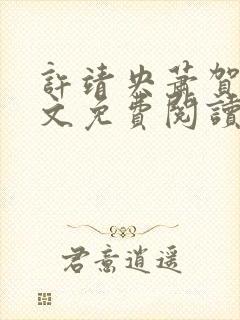 許靖央蕭賀
文免費閱讀
君意逍遥